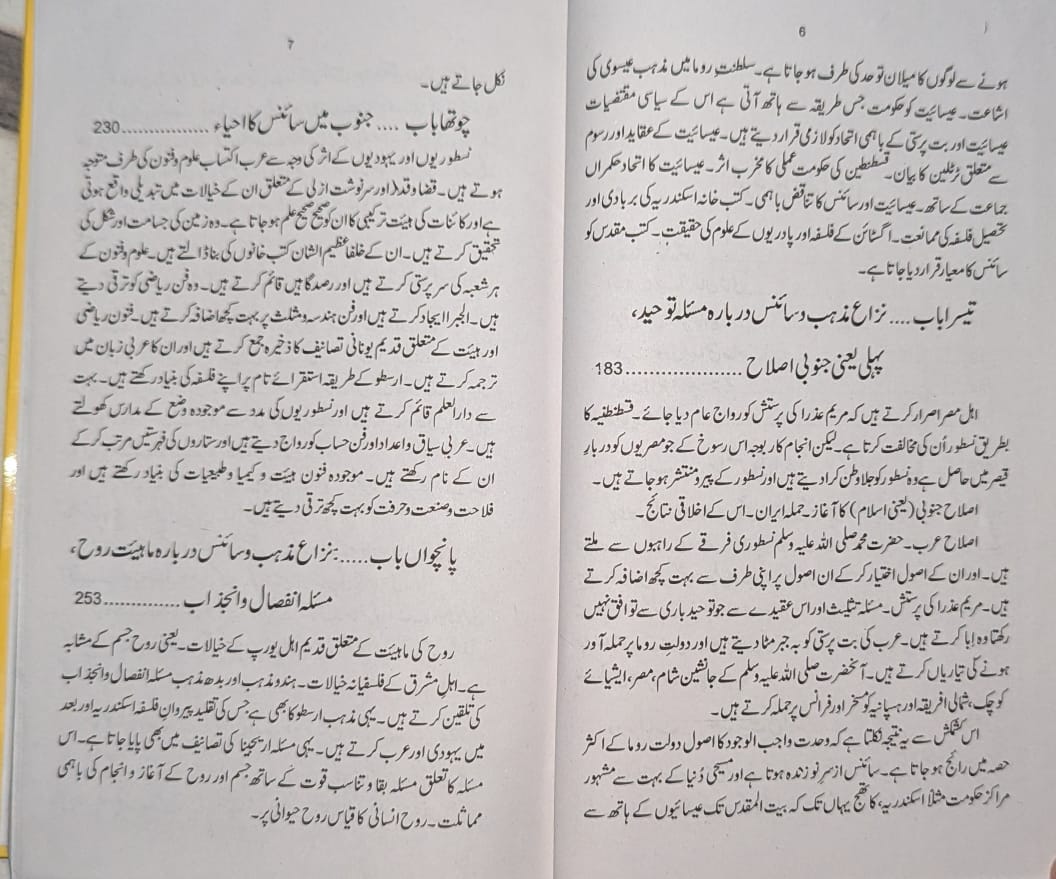 6
ہونے سے لوگوں کا میلان توحد کی طرف ہو جاتا ہے۔ سلطنتِ روما میں مذہب عیسوی کی
اشاعت۔ عیسائیت کو حکومت جس طریقہ سے ہاتھ آتی ہے اس کے سیاسی مقتضیات
عیسائیت اور بت پرستی کے باہمی اتحاد کو لازمی قرار دیتے ہیں۔ عیسائیت کے عقاید اور رسوم
سے متعلق ٹرٹلین کا بیان۔ قسطنطین کی حکومت عملی کا مخرب اثر۔ عیسائیت کا اتحاد حکمراں
جماعت کے ساتھ۔ عیسائیت اور سائنس کا تناقض باہمی۔ کتب خانہ اسکندریہ کی بربادی اور
تحصیل فلسفہ کی ممانعت۔ اگسٹائن کے فلسفہ اور پادریوں کے علوم کی حقیقت۔ کتب مقدس کو
سائنس کا معیار قرار دیا جاتا ہے۔
تیسرا باب .... نزاع مذہب و سائنس دربارہ مسئلہ توحید،
پہلی یعنی جنوبی اصلاح .................... 183
اہل مصر اصرار کرتے ہیں کہ مریم عذرا کی پرستش کو رواج عام دیا جائے۔ قسطنطنیہ کا
بطریق نسطور اُن کی مخالفت کرتا ہے۔ لیکن انجام کار بوجہ اس رسوخ کے جو مصریوں کو دربارِ
قیصر میں حاصل ہے وہ نسطور کو جلاوطن کرا دیتے ہیں اور نسطور کے پیرو منتشر ہو جاتے ہیں۔
اصلاح جنوبی (یعنی اسلام) کا آغاز۔ حملہ ایران۔ اس کے اخلاقی نتائج۔
اصلاح عرب۔ حضرت محمد صلی اللہ علیہ وسلم نسطوری فرقے کے راہبوں سے ملتے
ہیں۔ اور ان کے اصول اختیار کر کے ان اصول پر اپنی طرف سے بہت کچھ اضافہ کرتے
ہیں۔ مریم عذرا کی پرستش۔ مسئلہ تثلیث اور اس عقیدے سے جو توحید باری سے توافق نہیں
رکھتا وہ اِبا کرتے ہیں۔ عرب کی بت پرستی کو بہ جبر مٹا دیتے ہیں اور دولتِ روما پر حملہ آور
ہونے کی تیاریاں کرتے ہیں۔ آنحضرت صلی اللہ علیہ وسلم کے جانشین شام، مصر، ایشیائے
کوچک، شمالی افریقہ اور ہسپانیہ کو مسخر اور فرانس پر حملہ کرتے ہیں۔
اس کشمکش سے یہ نتیجہ نکلتا ہے کہ وحدت واجب الوجود کا اصول دولت روما کے اکثر
حصہ میں رائج ہو جاتا ہے۔ سائنس ازسرِ نو زندہ ہوتا ہے اور مسیحی دُنیا کے بہت سے مشہور
مراکز حکومت مثلاً اسکندریہ، کاتھیج یہاں تک کہ بیت المقدس تک عیسائیوں کے ہاتھ سے
7
نکل جاتے ہیں۔
چوتھا باب .... جنوب میں سائنس کا احیاء ................ 230
نسطوریوں اور یہودیوں کے اثر کی وجہ سے عرب اکتساب علوم و فنون کی طرف متوجہ
ہوتے ہیں۔ قضا و قدر اور سرنوشت ازلی کے متعلق ان کے خیالات میں تبدیلی واقع ہوتی
ہے اور کائنات کی ہیئت ترکیبی کا ان کو صحیح صحیح علم ہو جاتا ہے۔ وہ زمین کی جسامت اور شکل کی
تحقیق کرتے ہیں۔ ان کے خلفا عظیم الشان کتب خانوں کی بنا ڈالتے ہیں۔ علوم و فنون کے
ہر شعبہ کی سرپرستی کرتے ہیں اور رصدگاہیں قائم کرتے ہیں۔ وہ فن ریاضی کو ترقی دیتے
ہیں۔ الجبرا ایجاد کرتے ہیں اور فن ہندسہ و مثلث پر بہت کچھ اضافہ کرتے ہیں۔ فنون ریاضی
اور ہیئت کے متعلق قدیم یونانی تصانیف کا ذخیرہ جمع کرتے ہیں اور ان کا عربی زبان میں
ترجمہ کرتے ہیں۔ ارسطو کے طریقہ استقرائے تام پر اپنے فلسفہ کی بنیاد رکھتے ہیں۔ بہت
سے دارالعلم قائم کرتے ہیں اور نسطوریوں کی مدد سے موجودہ وضع کے مدارس کھولتے
ہیں۔ عربی سیاق و اعداد اور فن حساب کو رواج دیتے ہیں اور ستاروں کی فہرستیں مرتب کر کے
ان کے نام رکھتے ہیں۔ موجودہ فنون ہیئت و کیمیا و طبیعیات کی بنیاد رکھتے ہیں اور
فلاحت و صنعت و حرفت کو بہت کچھ ترقی دیتے ہیں۔
پانچواں باب.....: نزاع مذہب و سائنس دربارہ ماہیئت روح،
مسئلہ انفصال و انجذاب ............. 253
روح کی ماہیئت کے متعلق قدیم اہل یورپ کے خیالات۔ یعنی روح جسم کے مشابہ
ہے۔ اہلِ مشرق کے فلسفیانہ خیالات۔ ہندو مذہب اور بدھ مذہب مسئلہ انفصال و انجذاب
کی تلقین کرتے ہیں۔ یہی مذہب ارسطو کا بھی ہے جس کی تقلید پیروانِ فلسفہ اسکندریہ اور بعد
میں یہودی اور عرب کرتے ہیں۔ یہی مسئلہ اریجینا کی تصانیف میں بھی پایا جاتا ہے۔ اس
مسئلہ کا تعلق مسئلہ بقا و تناسب قوت کے ساتھ جسم اور روح کے آغاز و انجام کی باہمی
مماثلت۔ روح انسانی کا قیاس روح حیوانی پر۔